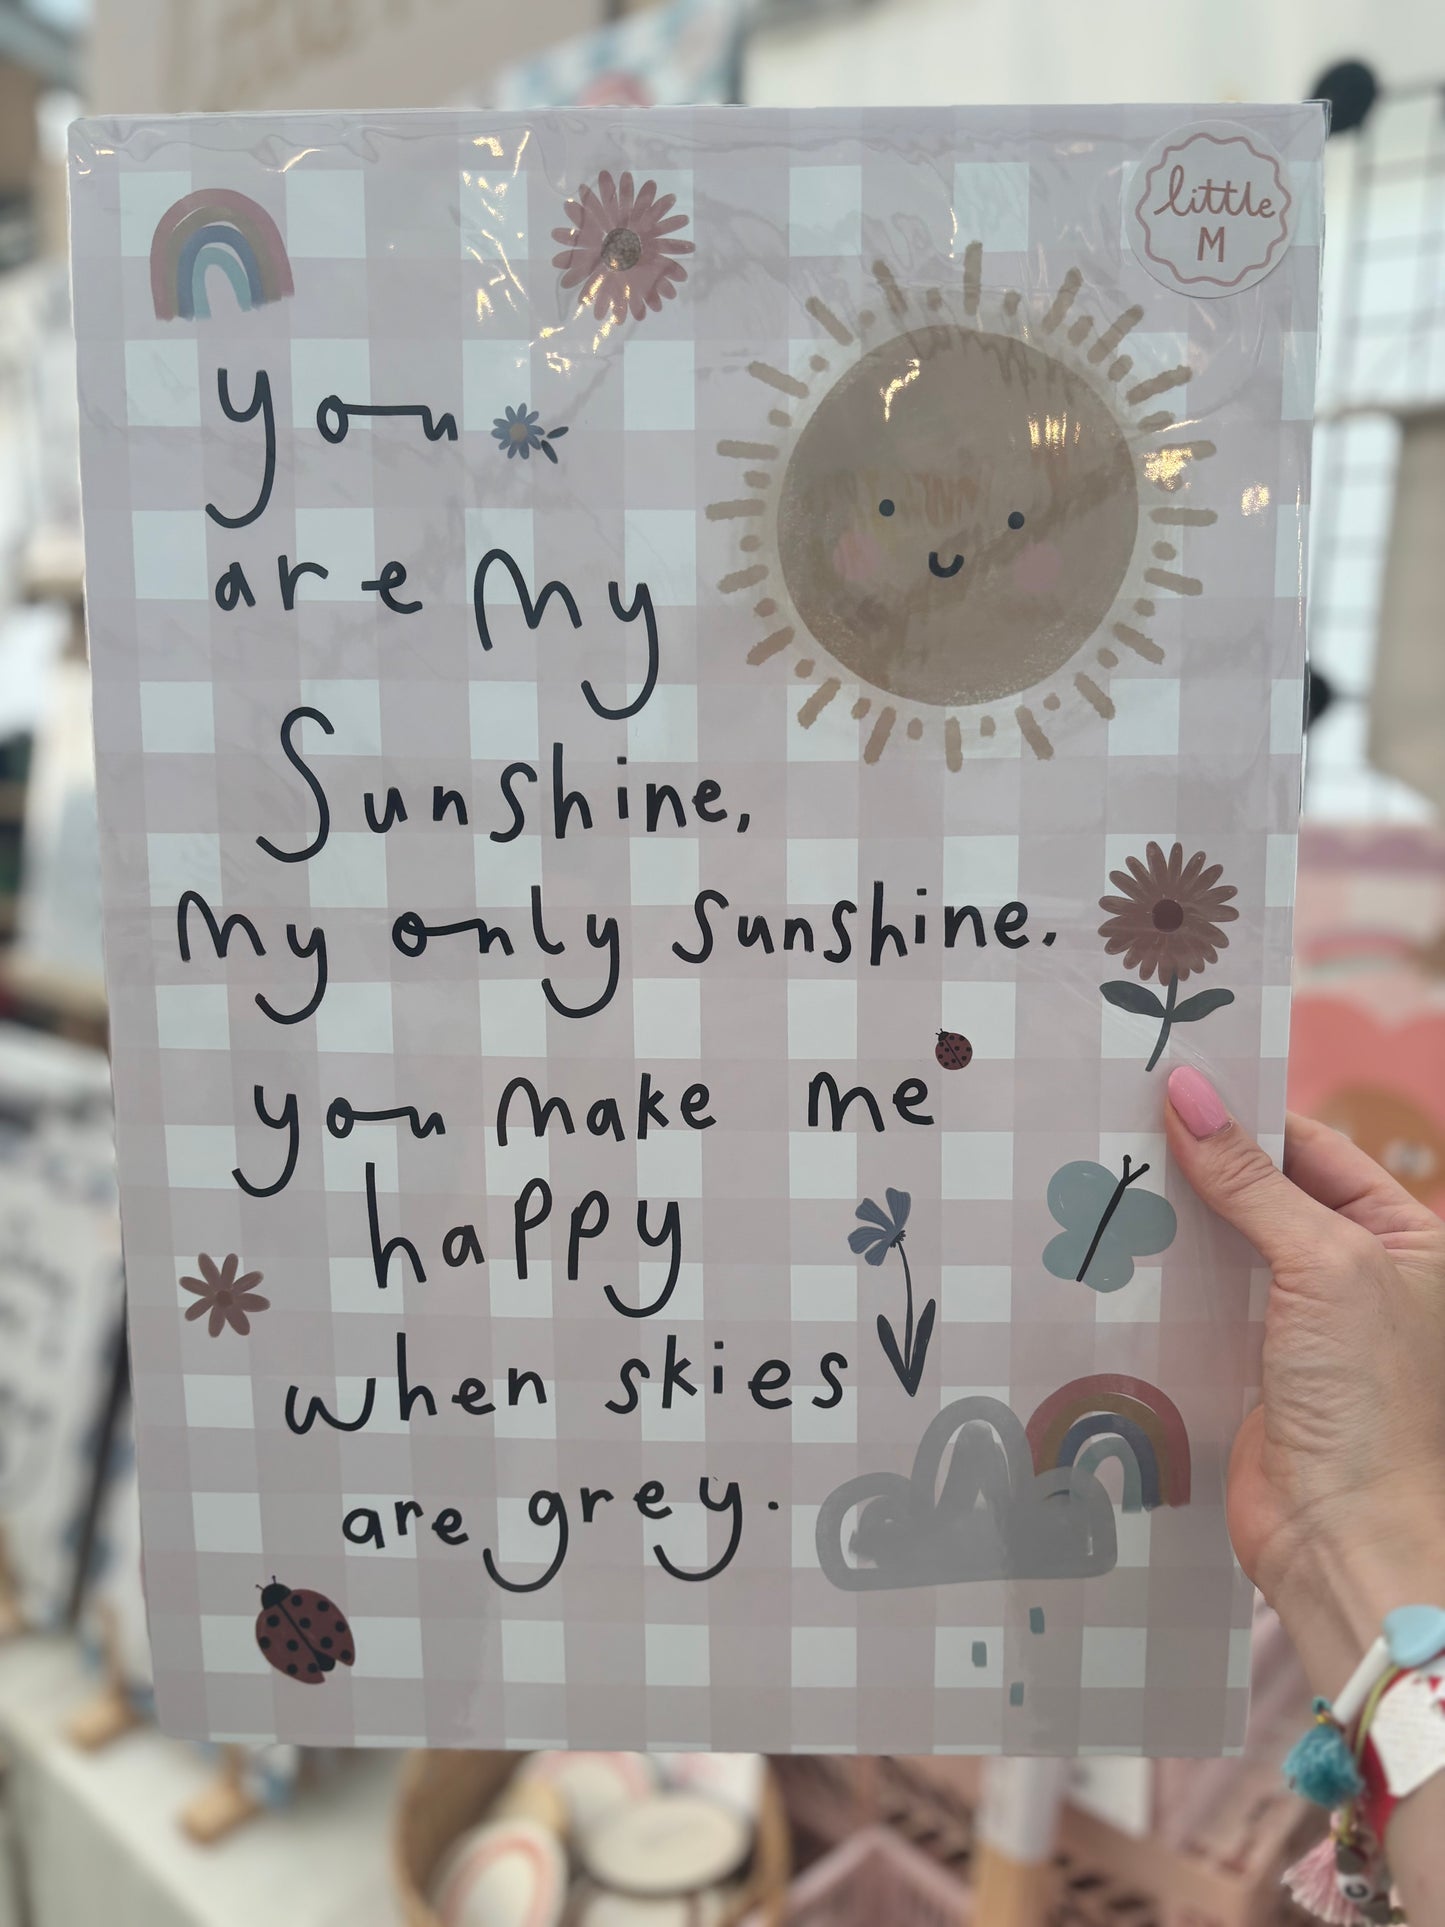 little
M
you
are my
Sunshine,
My only sunshine.
you make me
happy
when skies
are grey.